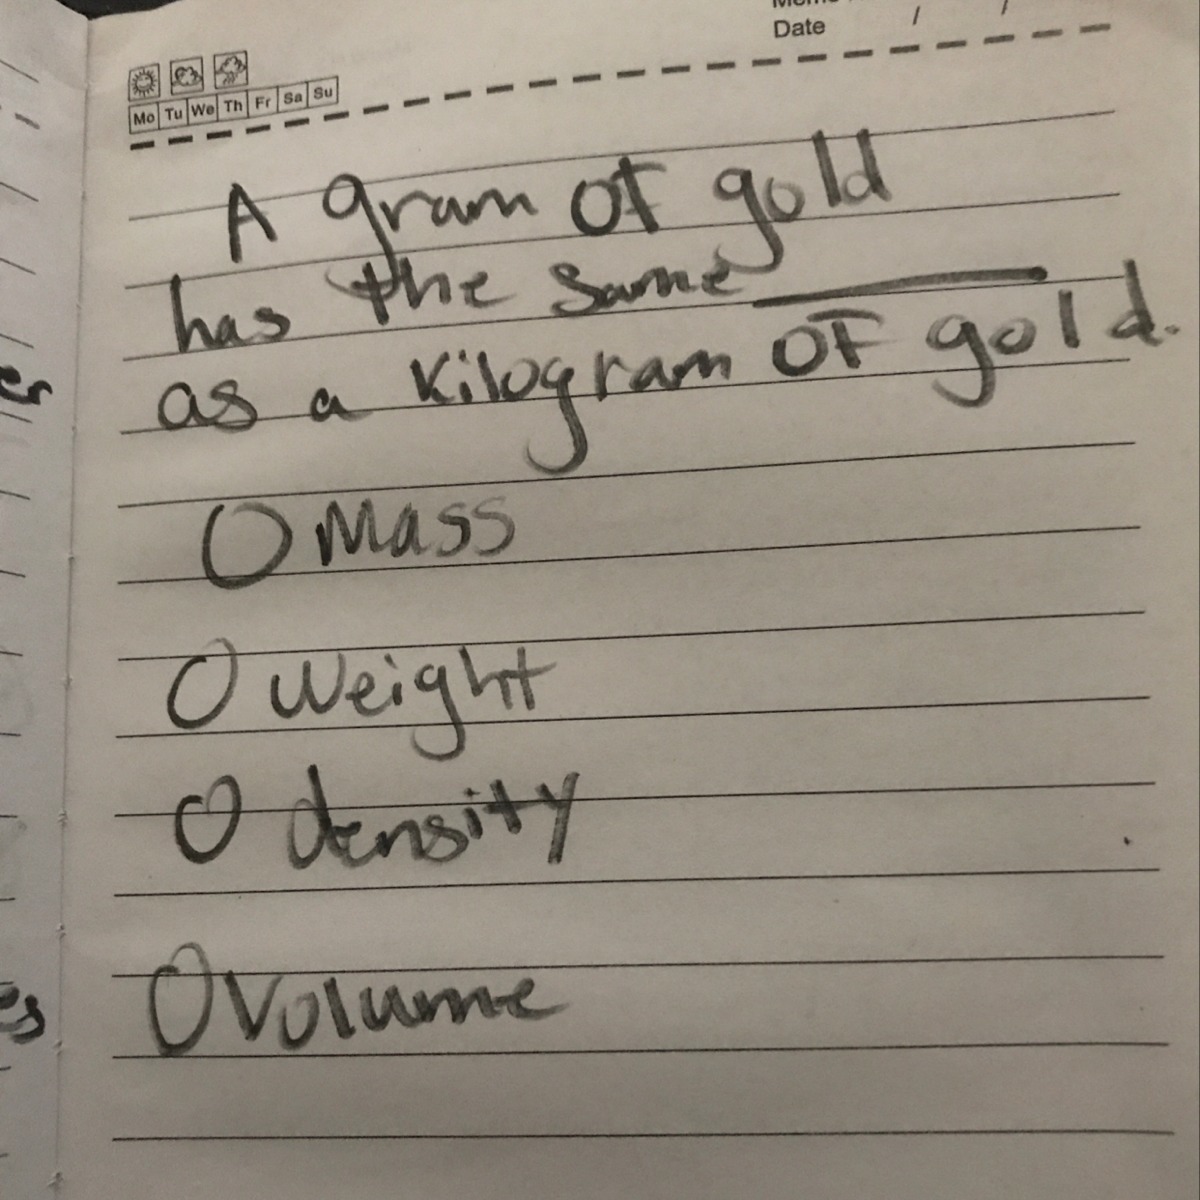 Date / /
Mo Tu We Th Fr Sa Su
A gram of gold
has the same ______
as a Kilogram OF gold.
O Mass
O Weight
O density
O Volume
er
es